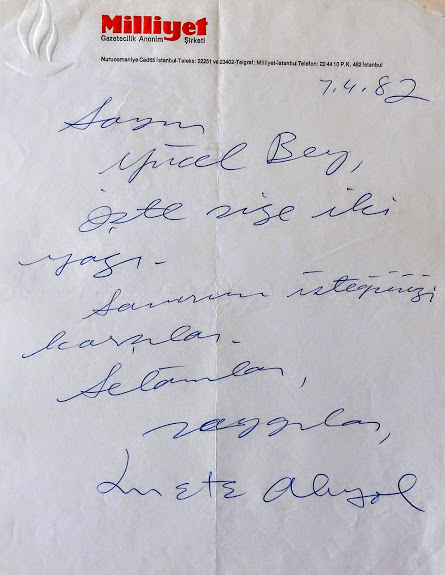 Milliyet
Gazetecilik Anonim Şirketi
Nuruosmaniye Cad65 İstanbul-Teleks: 22251 ve 23402-Telgraf; Milliyet-İstanbul Telefon: 22 44 10 P.K. 492 İstanbul
7.4.82
Sayın
Yücel Bey,
İşte size iki
yazı.
Sanırım isteğinizi
karşılar.
Selamlar,
saygılar,
Mete Akyol